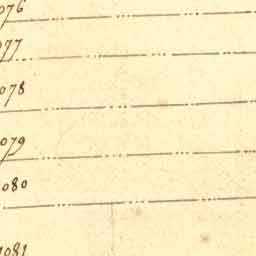 076
077
078
079
080
1081